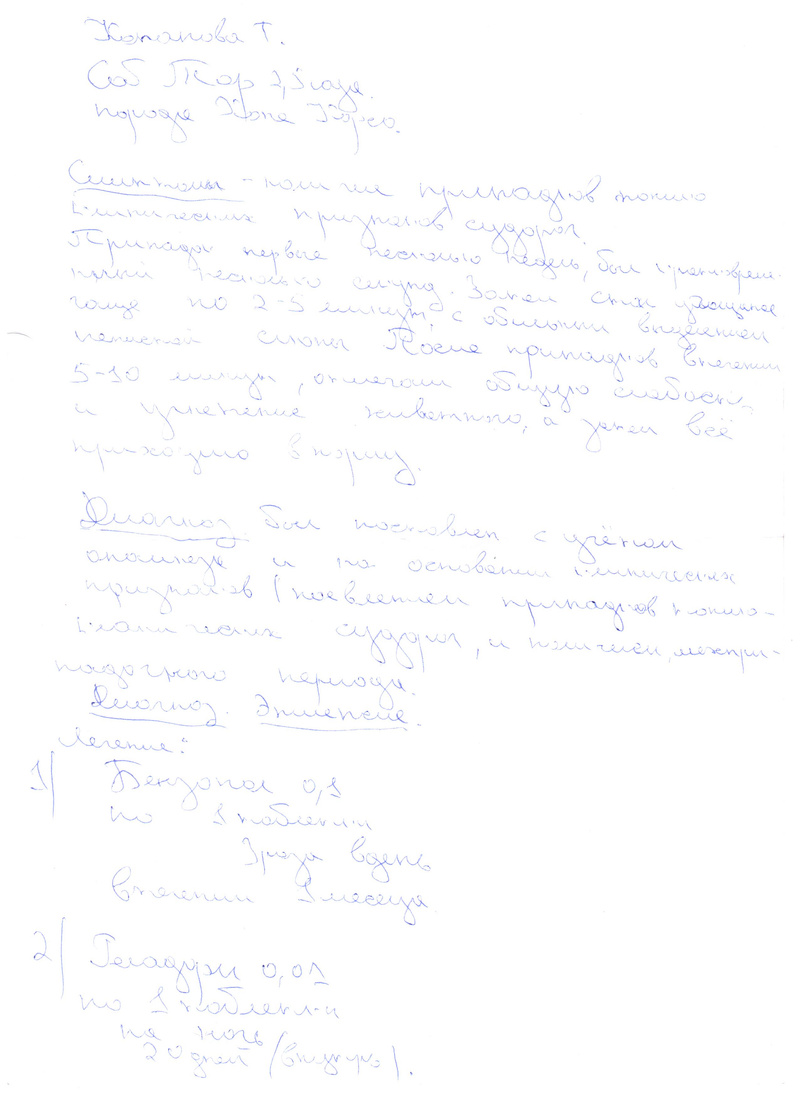 Соб Тор 2,5 года.
порода Кане Корсо.
Симптомы - наличие припадков тонико
клинических признаков судорог.
Припадки первые несколько недель, был кратковреме-
нный несколько секунд. Затем стал учащение
чаще по 2-5 минут, с обильным выделением
пенистой слюны После припадков в течении
5-10 минут, отмечали общую слабость,
и угнетение животного, а затем всё
приходило в норму.
Диагноз. был поставлен с учётом
анамнеза и на основании клинических
признаков (поевлением припадков тонико-
клонических судорог, и наличием межпри-
падочного периода.
Диагноз. Эпилепсие.
Лечение:
1) Бензонал 0,1
по 1 таблетки
3 раза в день
в течении 1 месеца
2) 0,01
по 1 таблетки
на ночь
20 дней (внутрь).